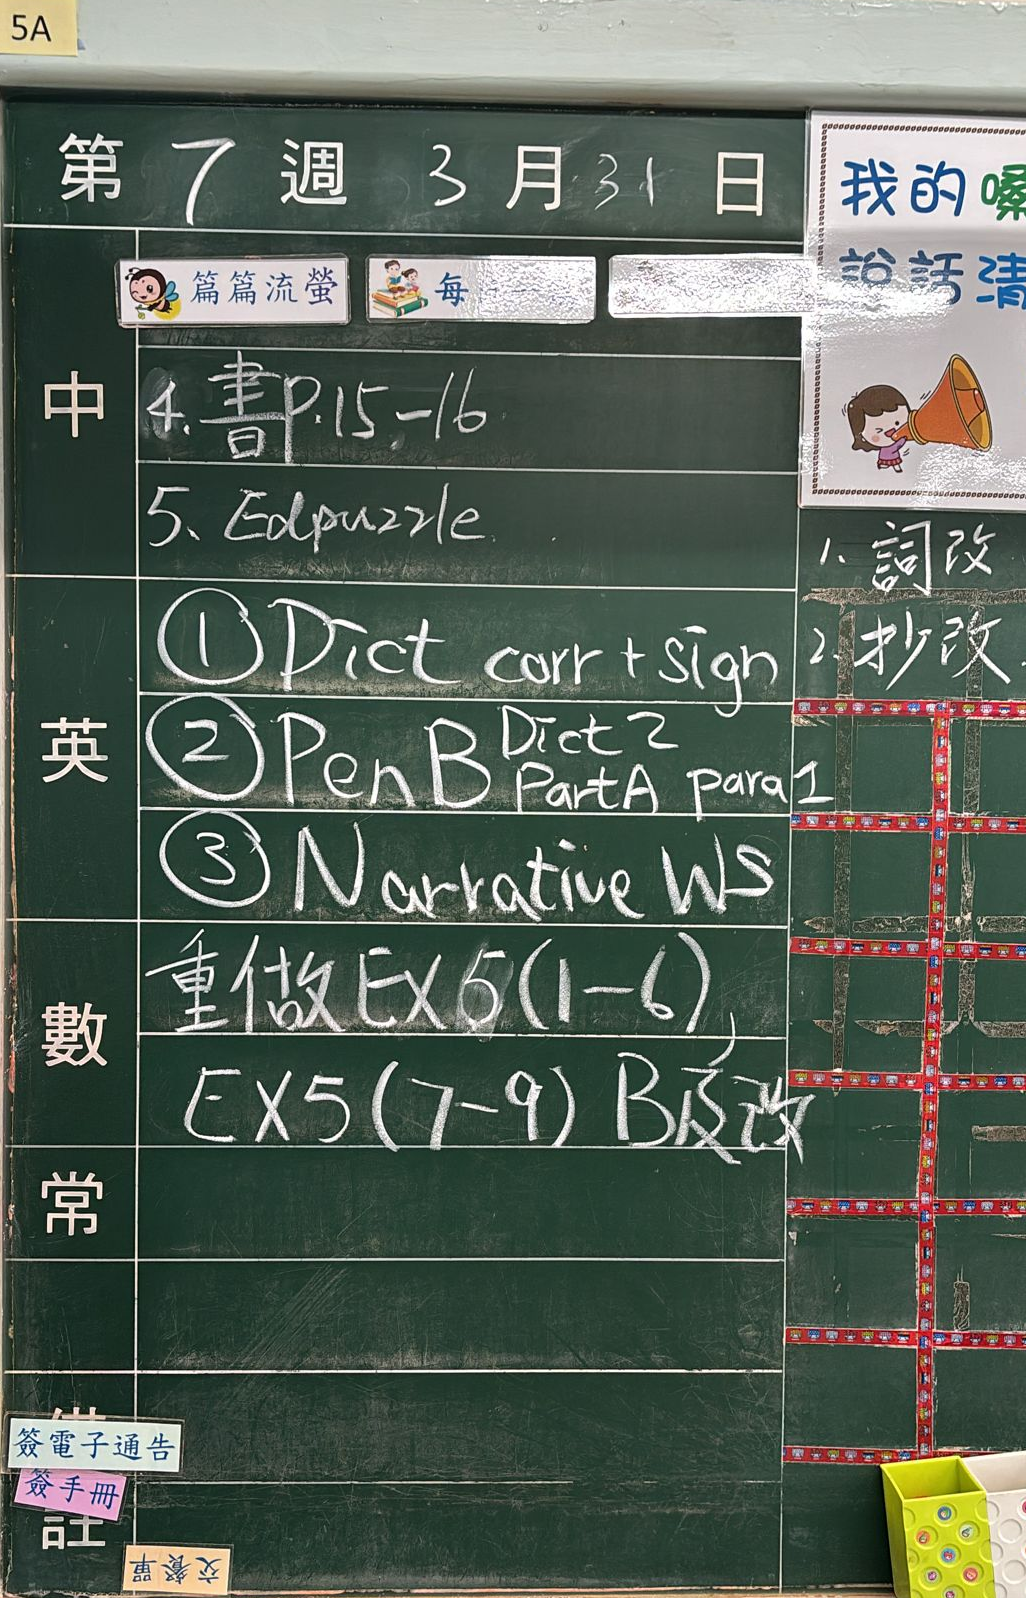 5A
第 7 週 3 月 31 日
篇篇流螢
每
中
4. 書P.15-16
5、Edpuzzle
英
① Dict corr + sign
② Pen B Dict 2
Part A para 1
③ Narrative WS
數
重做 EX 5 (1-6),
EX5 (7-9) B及改
常
簽電子通告
簽手冊
註
交餐單
我的
說話清
1. 詞改
2. 抄改